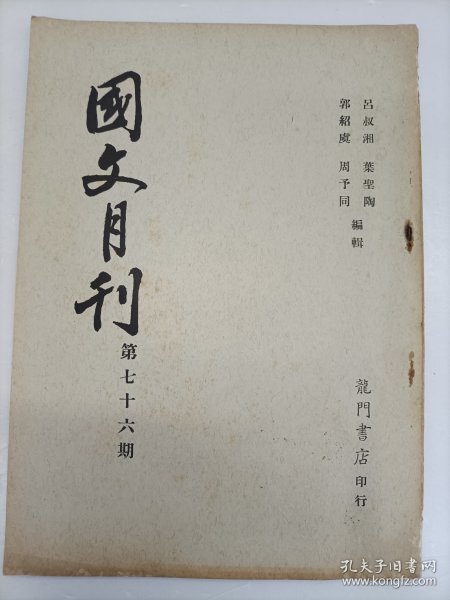 呂叔湘 葉聖陶
郭紹虞 周予同
編輯
龍門書店印行
國文月刊
第七十六期
孔夫子旧书网
www.kongfz.com